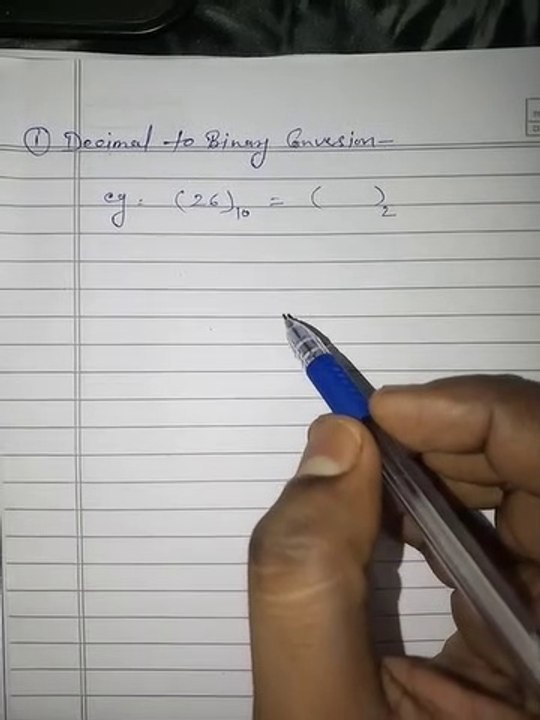 ① Decimal to Binary Convesion-
eg: (26)₁₀ = ( )₂